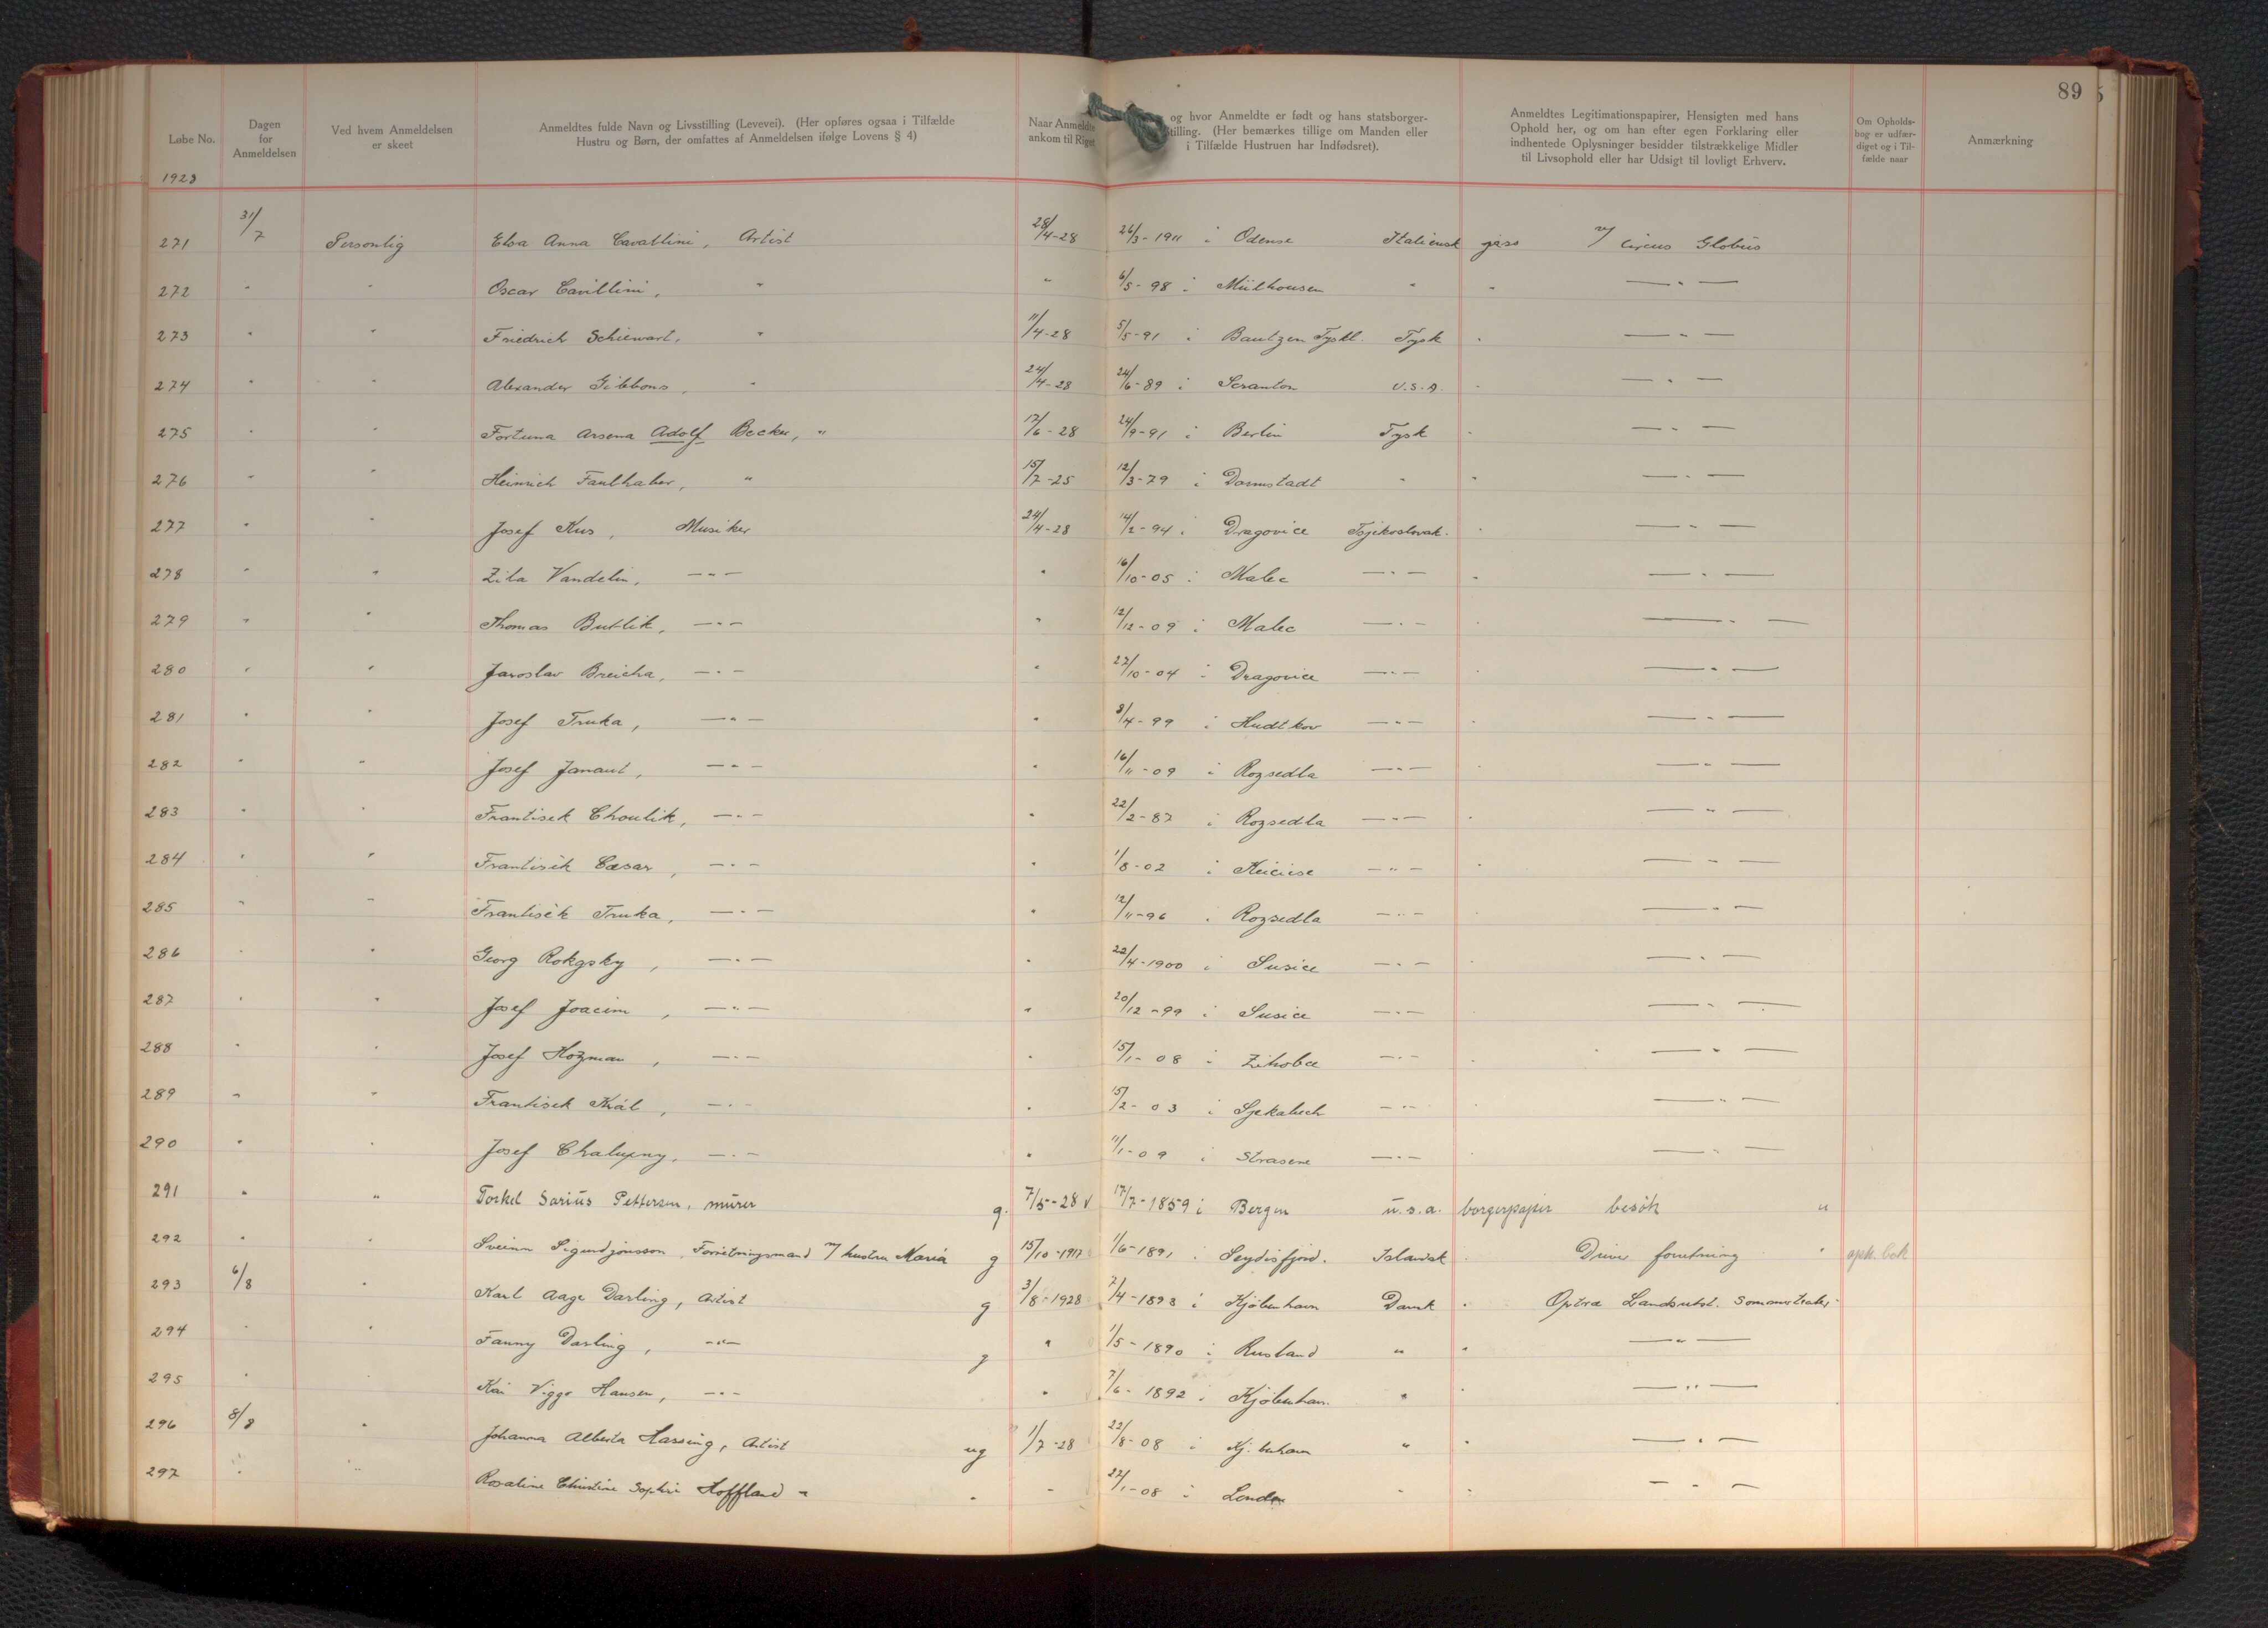 89
Løbe No.
Dagen for Anmeldelsen
Ved hvem Anmeldelsen er skeet
Anmeldtes fulde Navn og Livsstilling (Levevei). (Her opføres ogsaa i Tilfælde Hustru og Børn, der omfattes af Anmeldelsen ifølge Lovens § 4)
Naar Anmeldte ankom til Riget
og hvor Anmeldte er født og hans statsborger- stilling. (Her bemærkes tillige om Manden eller i Tilfælde Hustruen har Indfødsret).
Anmeldtes Legitimationspapirer, Hensigten med hans Ophold her, og om han efter egen Forklaring eller indhentede Oplysninger besidder tilstrækkelige Midler til Livsophold eller har Udsigt til lovligt Erhverv.
Om Opholds- bog er udfær- diget og i Til- fælde naar
Anmærkning
1928
271 31/7 Personlig Elsa Anna Cavallini, Artist 28/4-28 26/3-1911 i Odense Italiensk pass m/ Circus Globus
272 " " Oscar Cavillini, " " 6/5-98 i Mülhousen " " —"—
273 " " Friedrich Schiewart, " 11/4-28 5/5-91 i Bautzen Tyskl. Tysk " —"—
274 " " Alexander Gibbons, " 24/4-28 24/6-89 i Scranton U.S.A. " —"—
275 " " Fortuna Arsena Adolf Becker, " 17/6-28 24/9-91 i Berlin Tysk " —"—
276 " " Heinrich Faulhaber, " 15/7-25 12/3-79 i Darmstadt " " —"—
277 " " Josef Kus, Musiker 24/4-28 14/2-94 i Dragovice Tsjekoslovak. " —"—
278 " " Zila Vandelin, —"— " 16/10-05 i Malec —"— " —"—
279 " " Thomas Butlik, —"— " 12/12-09 i Malec —"— " —"—
280 " " Jaroslav Breicha, —"— " 27/10-04 i Dragovice —"— —"—
281 " " Josef Truka, —"— " 8/4-99 i Hudtkov —"— " —"—
282 " " Josef Janaut, —"— " 16/11-09 i Rozsedla —"— " —"—
283 " " Frantisek Choulik, —"— " 22/2-87 i Rozsedla —"— " —"—
284 " " Frantisek Cæsar, —"— " 1/8-02 i —"— " —"—
285 " " Frantisék Truka, —"— " 12/11-96 i Rozsedla —"— " —"—
286 " " Georg Rokgsky, —"— " 22/4-1900 i Susice —"— " —"—
287 " " Josef Joacim, —"— " 20/12-99 i Susice —"— " —"—
288 " " Josef Hozman, —"— " 15/1-08 i Zihobce —"— " —"—
289 " " Frantisek Král, —"— " 15/2-03 i —"— " —"—
290 " " Josef Chalupny, —"— " 11/1-09 i Strasene —"— " —"—
291 " " Torkel Sarius Pettersen, murer g. 7/5-28 v 17/7-1859 i Bergen u.s.a. borgerpapir besök "
292 " Sveinn Sigurdjonsson, Forretningsmand m/ hustru Maria g 15/10-1917 1/6-1891 i Seydisfjord. Islandsk " Driver forretning " oph. bok
293 6/8 " Karl Aage Darling, Artist g 3/8-1928 7/4-1893 i Kjöbenhavn Dansk " Optræ Landsutst. Sommerteater
294 " " Fanny Darling, —"— g " 1/5-1890 i Rusland " " —"—
295 " " Kai Viggo Hansen, —"— " 7/6-1892 i Kjöbenhavn. " " —"—
296 8/8 " Johanna Alberta Hassing, Artist ug 1/7-28 22/8-08 i Kj.benhavn " " —"—
297 " " Rosaline Christine Sophie Hoffland " " " 27/1-08 i London " " —"—